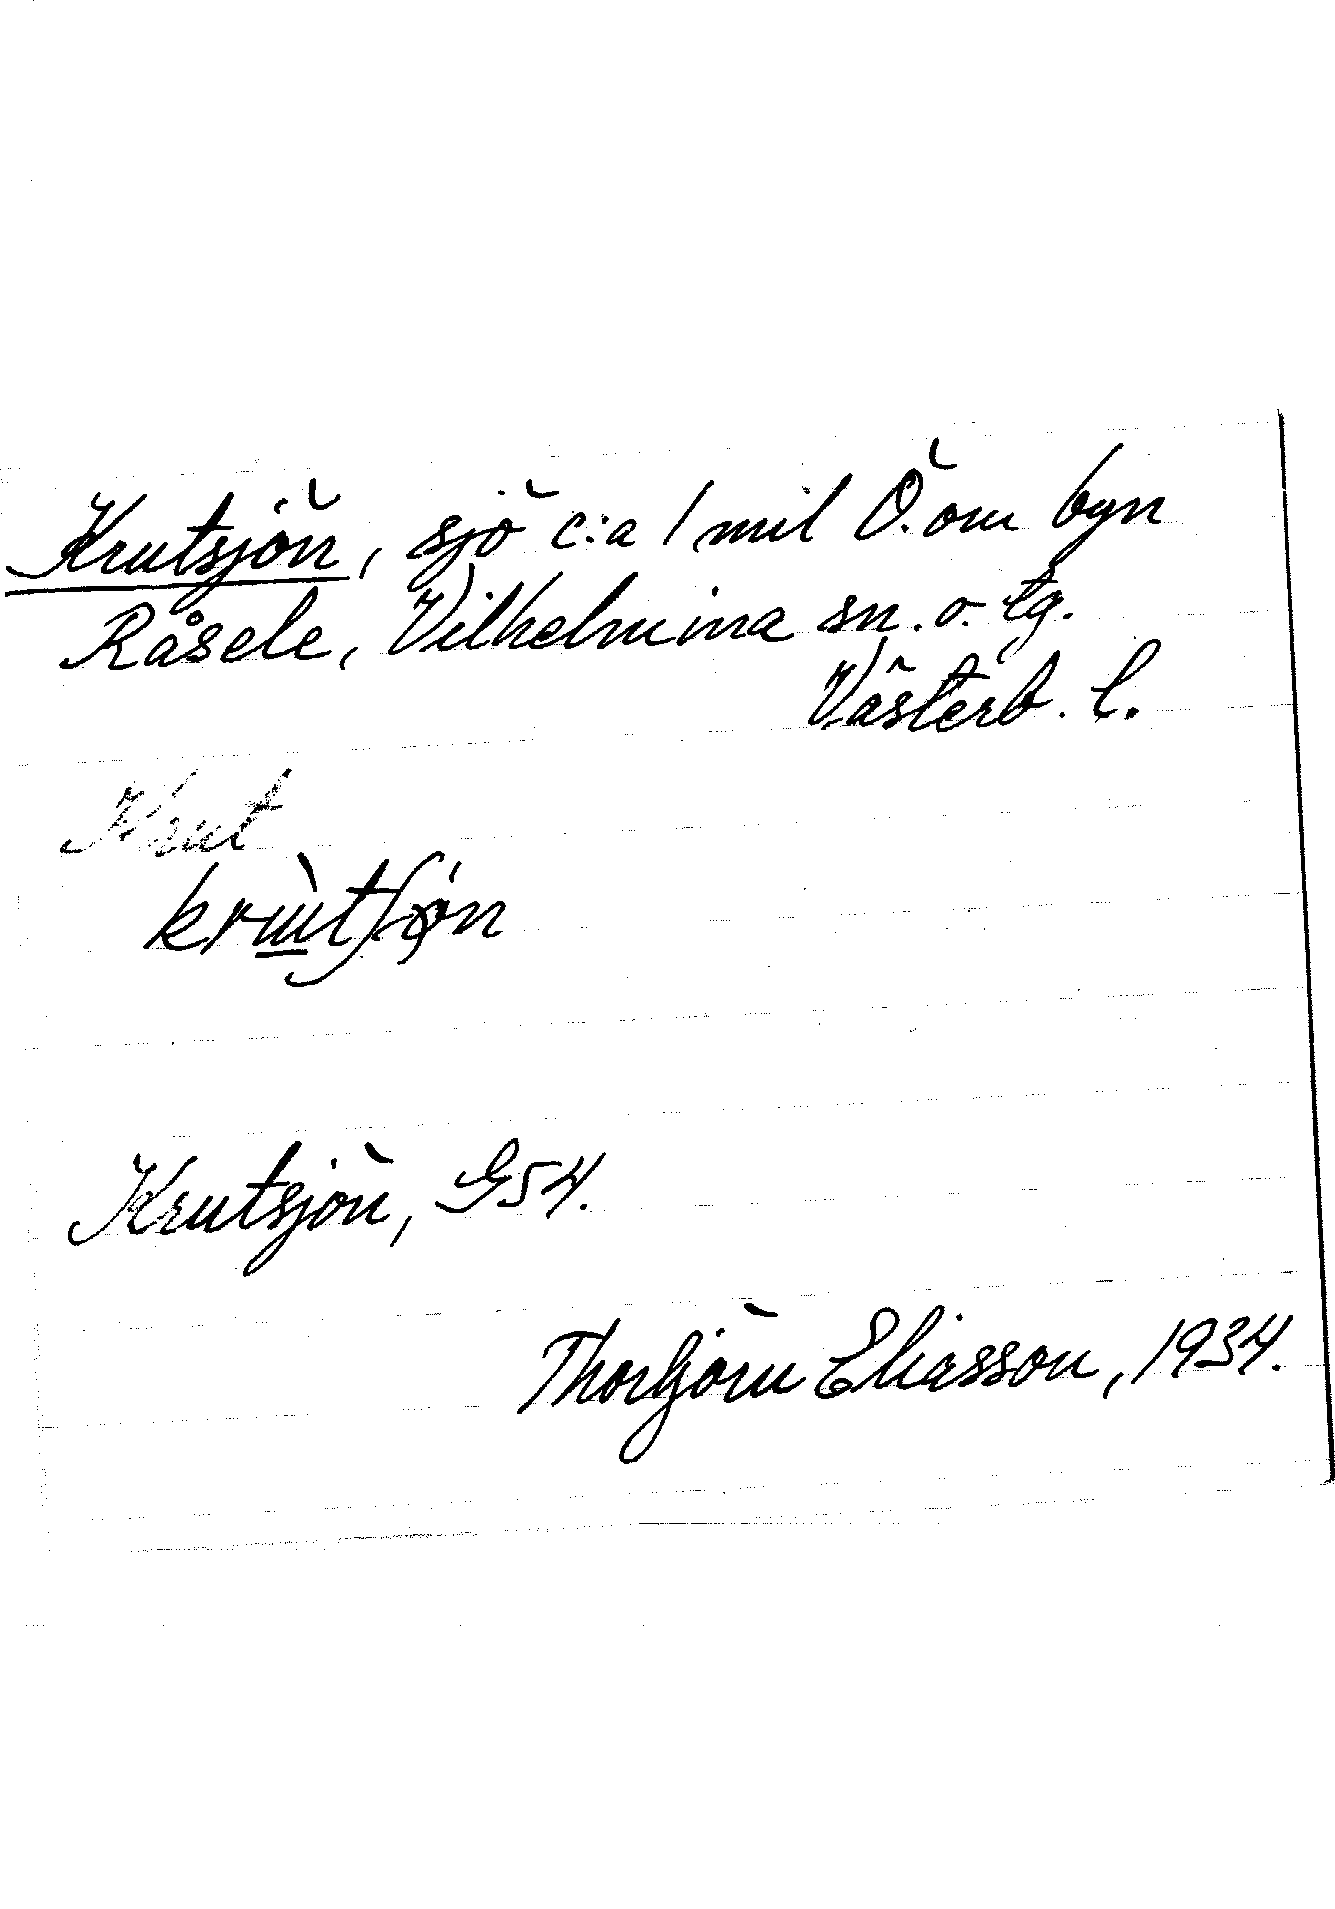 Krutsjön, sjö c:a 1 mil Ö. om byn
Råsele, Vilhelmina sn. o. tg.
Västerb. l.
Krut
Krutsjön, G54.
Thorbjörn Eliasson, 1934.